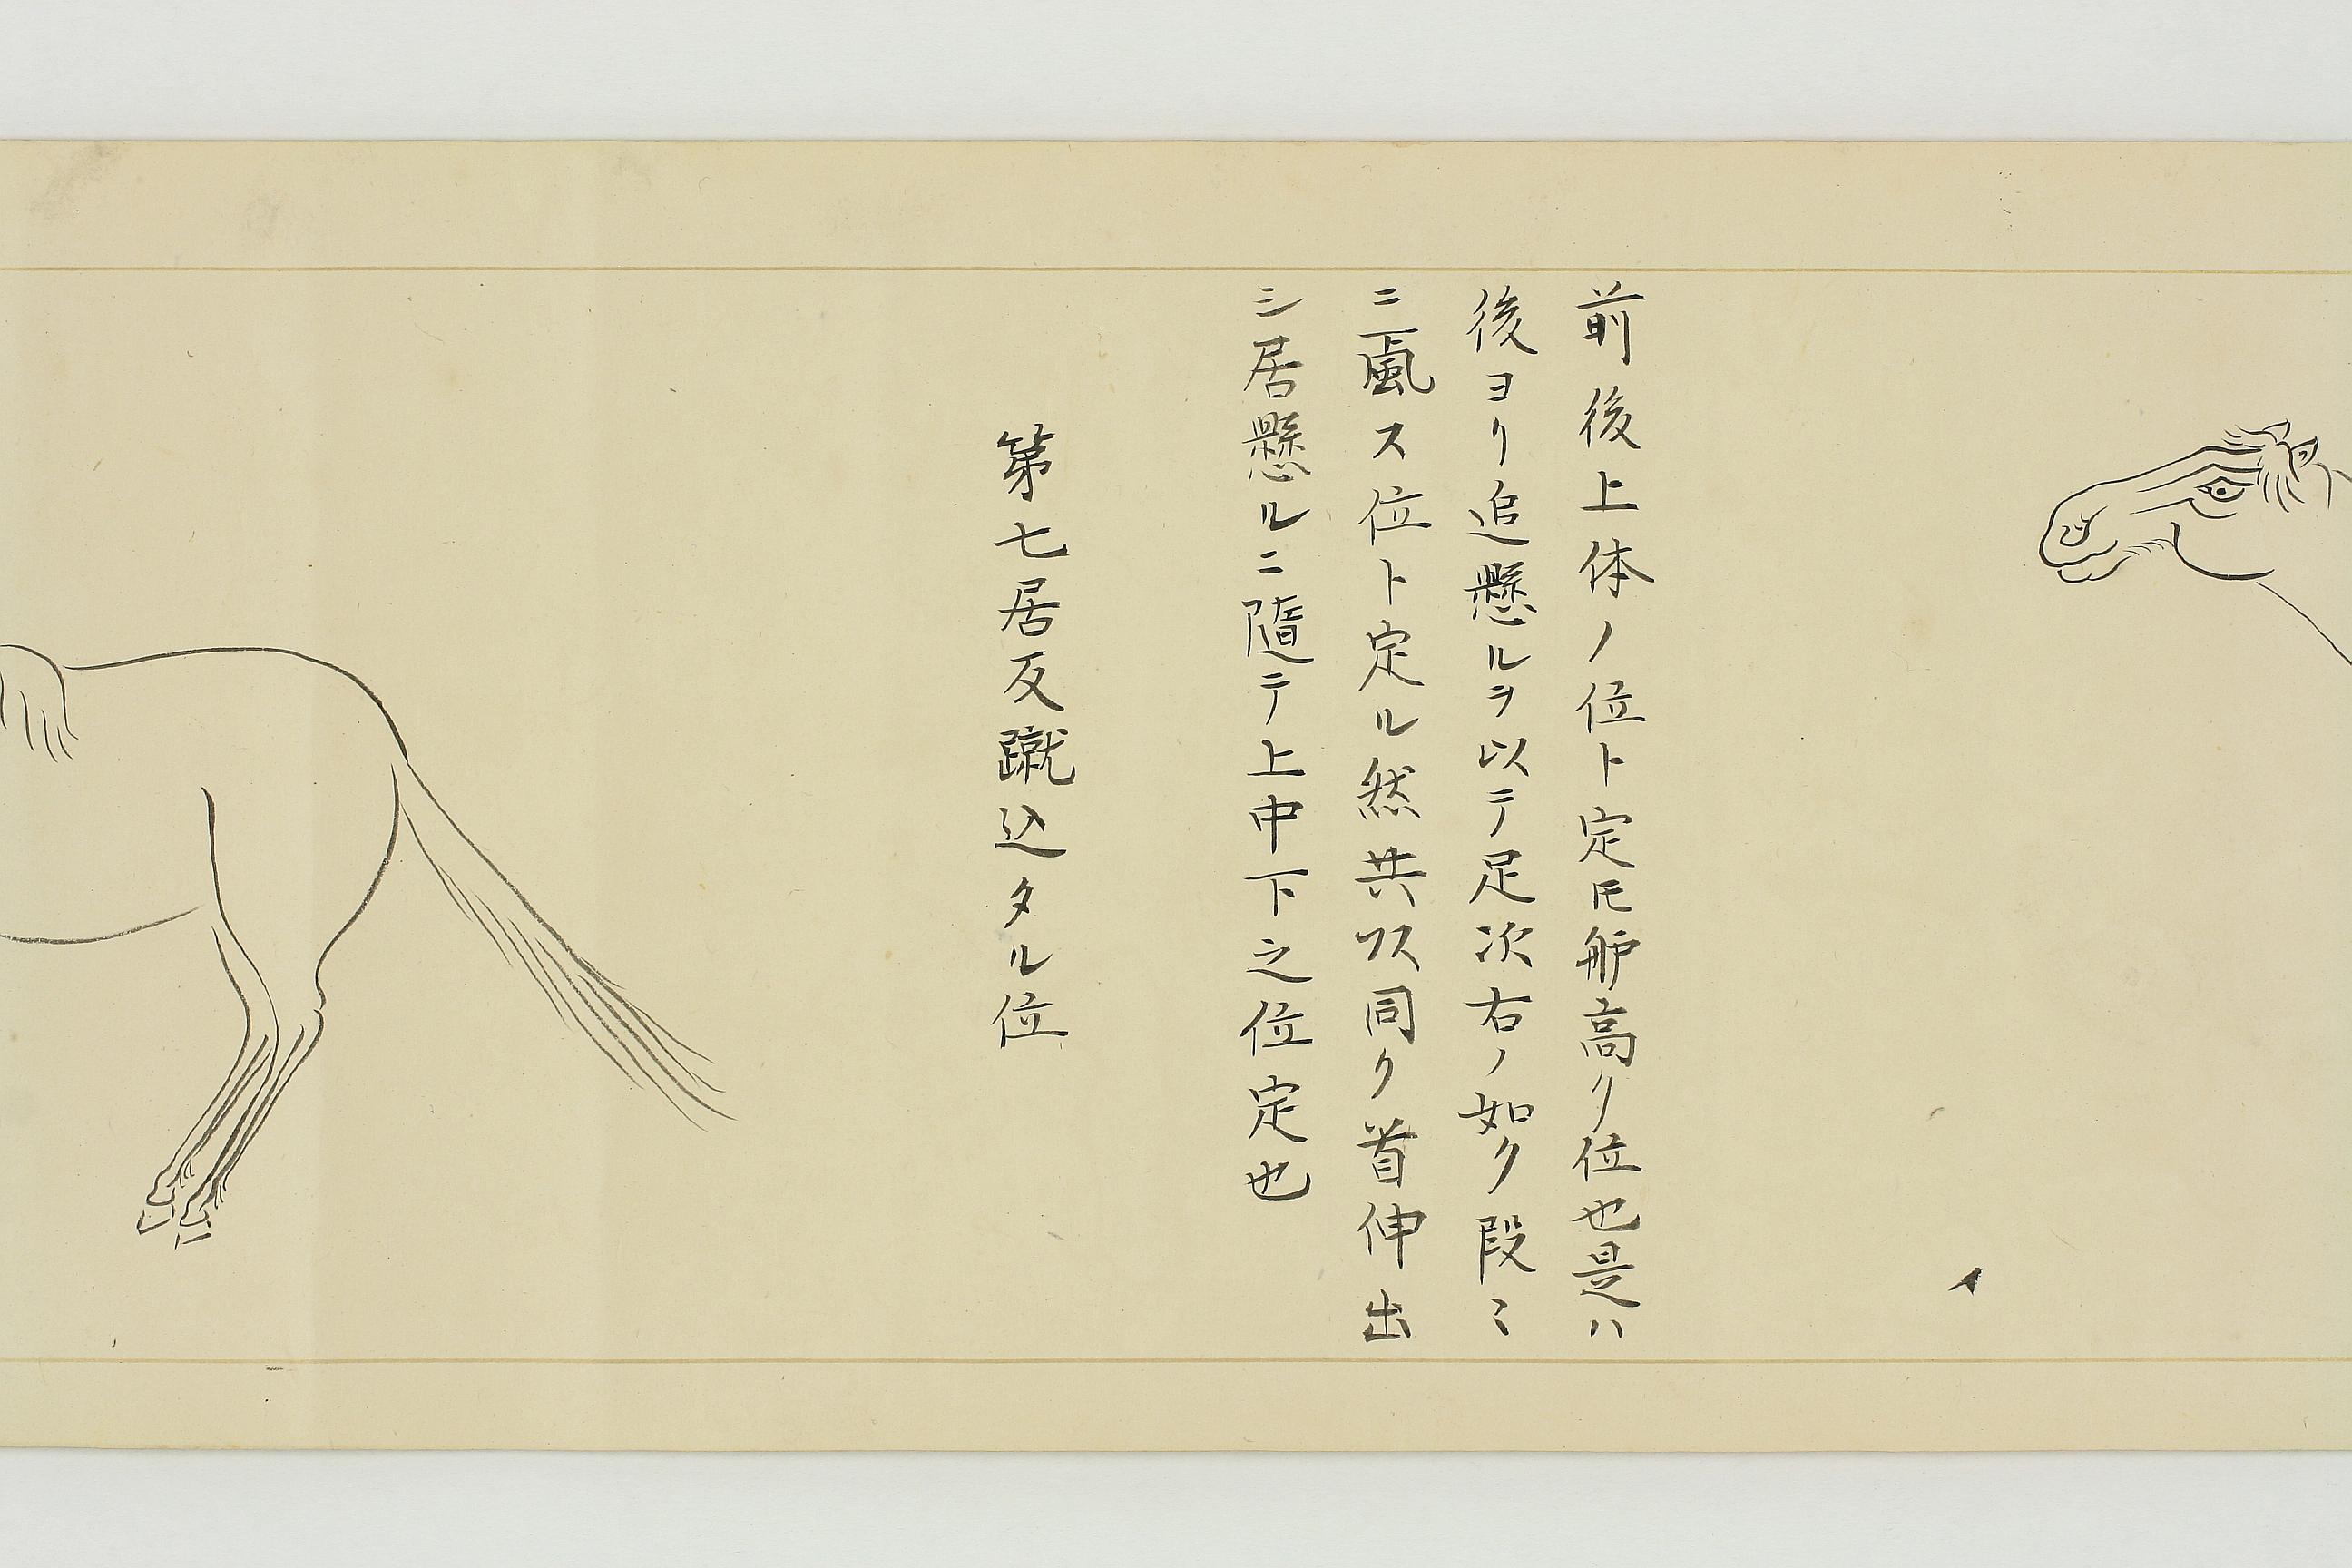 前後上体ノ位ト定𪜈舮高ク位也是ハ
後ヨリ追懸ルヲ以テ足次右ノ如ク段ミ
ニス位ト定ル然共以同ク首伸出
シ居懸ルニ隨テ上中下之位定也
第七居反蹴込タル位